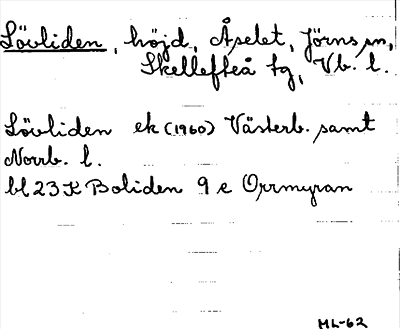 Lövliden, höjd, Åselet, Jörns sn,
Skellefteå tg, Vb. l.
Lövliden ek (1960) Västerb. samt
Norrb. l.
bl 23 K Boliden 9 e Orrmyran
ML-62